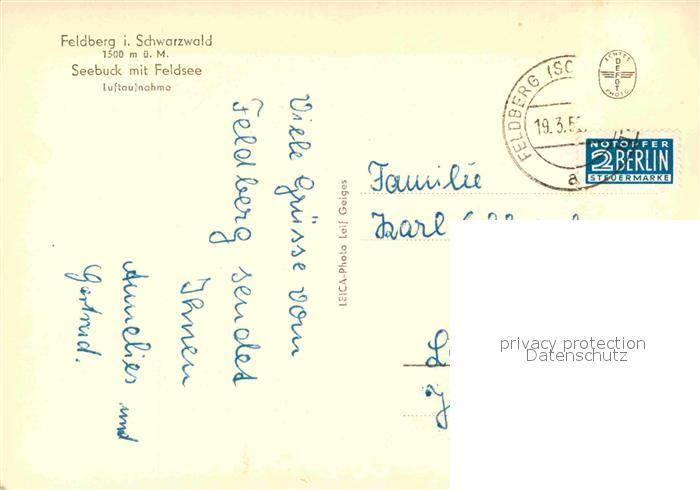 Feldberg i. Schwarzwald
1500 m ü. M.
Seebuck mit Feldsee
Luftaufnahme
Viele Grüsse vom
Feldberg sendet
Ihnen
Annelies und
Gertrud.
LEICA-Photo Leif Geiges
ECHTES
DEFOT
PHOTO
FELDBERG (SC
19.3.5
a
NOTOPFER
2 BERLIN
STEUERMARKE
Familie
Karl
privacy protection
Datenschutz